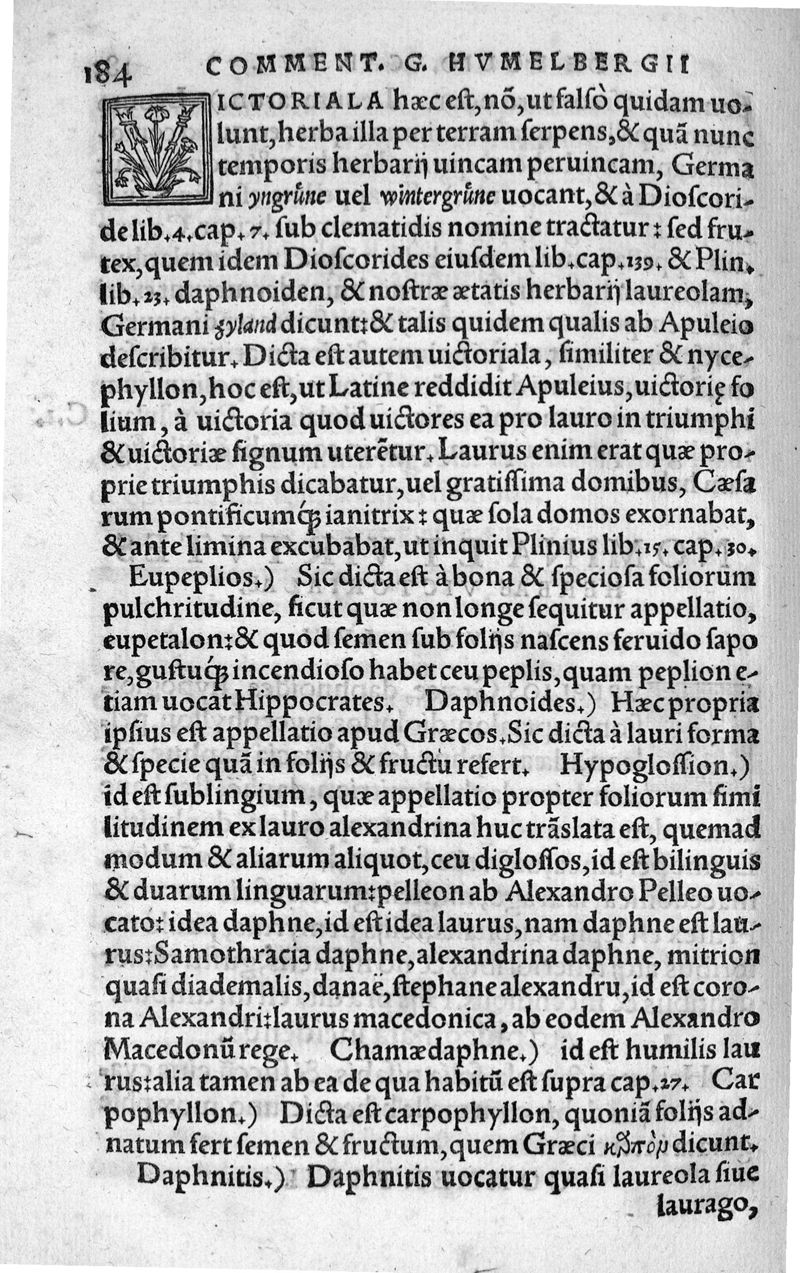 184 COMMENT. G. HVMELBERGII
VICTORIALA hæc est, nõ, ut falsò quidam uo-
lunt, herba illa per terram serpens, & quã nunc
temporis herbarij uincam peruincam, Germa
ni yngrůne uel wintergrůne uocant, & à Dioscori-
de lib. 4. cap. 7. sub clematidis nomine tractatur: sed fru-
tex, quem idem Dioscorides eiusdem lib. cap. 139. & Plin.
lib. 23. daphnoiden, & nostræ ætatis herbarij laureolam,
Germani zyland dicunt: & talis quidem qualis ab Apuleio
describitur. Dicta est autem uictoriala, similiter & nyce-
phyllon, hoc est, ut Latine reddidit Apuleius, uictorię fo
lium, à uictoria quod uictores ea pro lauro in triumphi
& uictoriæ signum uterẽtur. Laurus enim erat quæ pro-
prie triumphis dicabatur, uel gratissima domibus, Cæsa
rum pontificumq́ꝫ ianitrix: quæ sola domos exornabat,
& ante limina excubabat, ut inquit Plinius lib. 15. cap. 30.
Eupeplios.) Sic dicta est à bona & speciosa foliorum
pulchritudine, sicut quæ non longe sequitur appellatio,
eupetalon: & quod semen sub folijs nascens feruido sapo
re, gustuq́ꝫ incendioso habet ceu peplis, quam peplion e-
tiam uocat Hippocrates. Daphnoides.) Hæc propria
ipsius est appellatio apud Græcos. Sic dicta à lauri forma
& specie quã in folijs & fructu refert. Hypoglossion.)
id est sublingium, quæ appellatio propter foliorum simi
litudinem ex lauro alexandrina huc trãslata est, quemad
modum & aliarum aliquot, ceu diglossos, id est bilinguis
& duarum linguarum: pelleon ab Alexandro Pelleo uo-
cato: idea daphne, id est idea laurus, nam daphne est lau-
rus: Samothracia daphne, alexandrina daphne, mitrion
quasi diademalis, danaë, stephane alexandru, id est coro-
na Alexandri: laurus macedonica, ab eodem Alexandro
Macedonũ rege. Chamædaphne.) id est humilis lau
rus: alia tamen ab ea de qua habitũ est supra cap. 27. Car
pophyllon.) Dicta est carpophyllon, quoniã folijs ad-
natum fert semen & fructum, quem Græci dicunt.
Daphnitis.) Daphnitis uocatur quasi laureola siue
laurago,